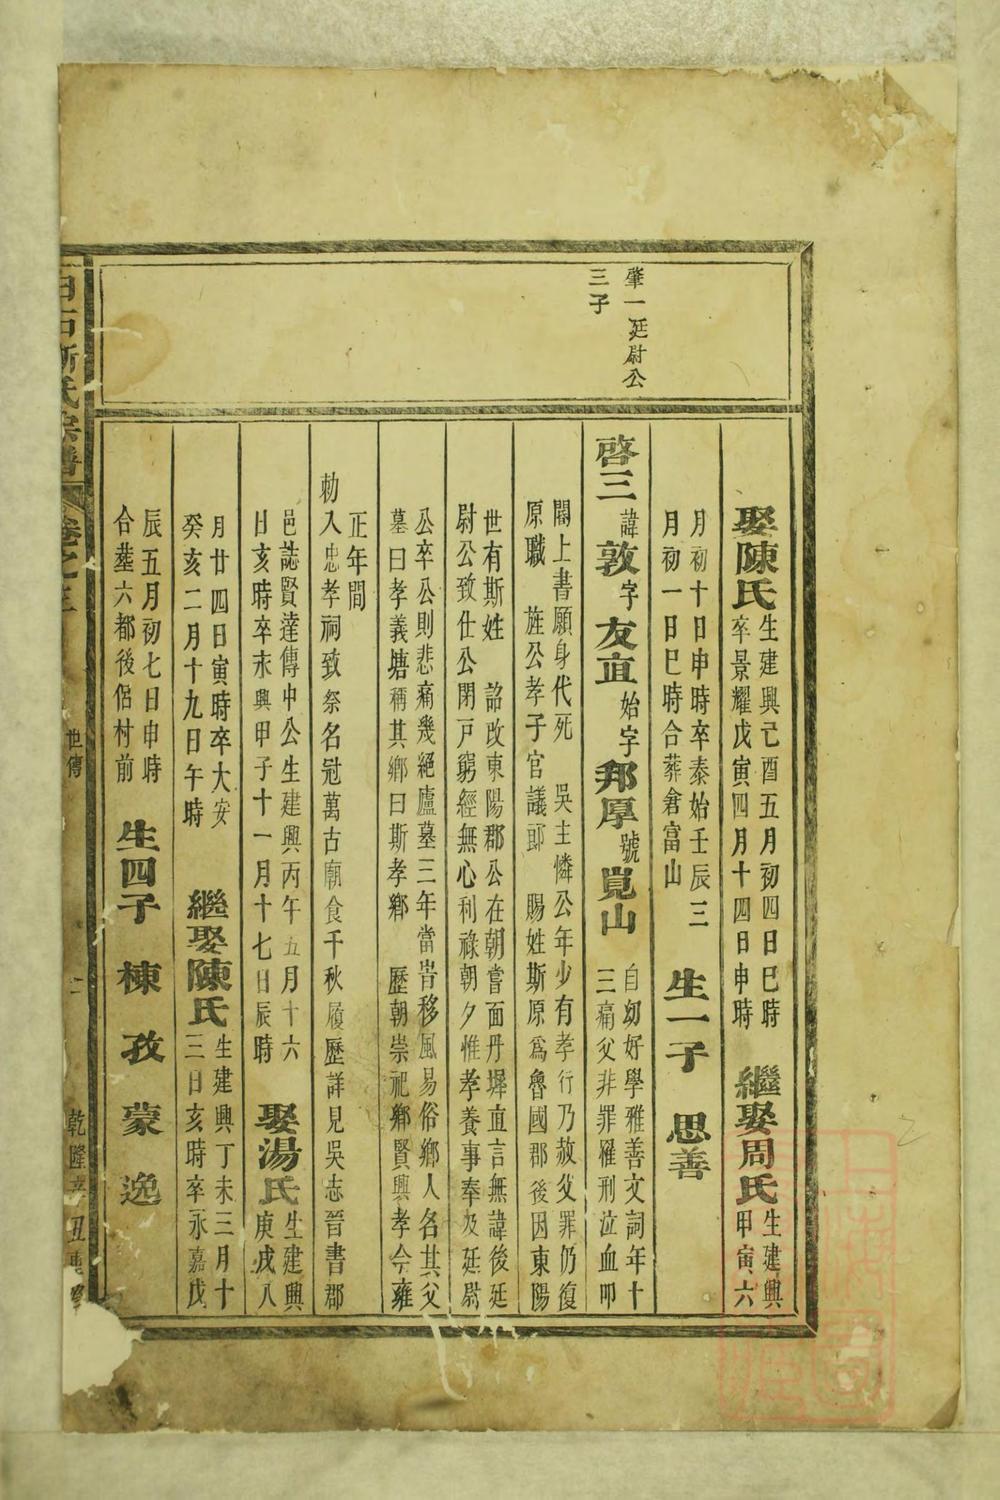 肇一廷尉公
三子
娶陳氏生建興己酉五月初四日巳時
卒景耀戊寅四月十四日申時
繼娶周氏生建興
甲寅六
月初十日申時卒泰始壬辰三
月初一日巳時合葬倉富山
生一子　思善
啓三諱敦字友直始字邦厚號崑山
自幼好學雅善文詞年十
三痛父非罪罹刑泣血叩
閽上書願身代死　吳主憐公年少有孝行乃赦父罪仍復
原職　旌公孝子官議郎　賜姓斯原爲魯國郡後因東陽
世有斯姓　詔改東陽郡公在朝嘗面丹墀直言無諱後廷
尉公致仕公閉戸窮經無心利祿朝夕惟孝養事奉及廷尉
公卒公則悲痛幾絕廬墓三年當時移風易俗鄉人名其父
墓曰孝義塘稱其鄉曰斯孝鄉　歷朝崇祀鄉賢興孝今雍
正年間
勅入忠孝祠致祭名冠萬古廟食千秋履歷詳見吳志晉書郡
邑誌賢達傳中公生建興丙午五月十六
日亥時卒永興甲子十一月十七日辰時
娶湯氏生建興
庚戌八
月廿四日寅時卒大安
癸亥二月十九日午時
繼娶陳氏生建興丁未三月十
三日亥時卒永嘉戊
辰五月初七日申時
合塟六都後侶村前
生四子　棟　孜　蒙　逸
白石斯氏宗譜
卷之三
世傳
乾隆
丑重修